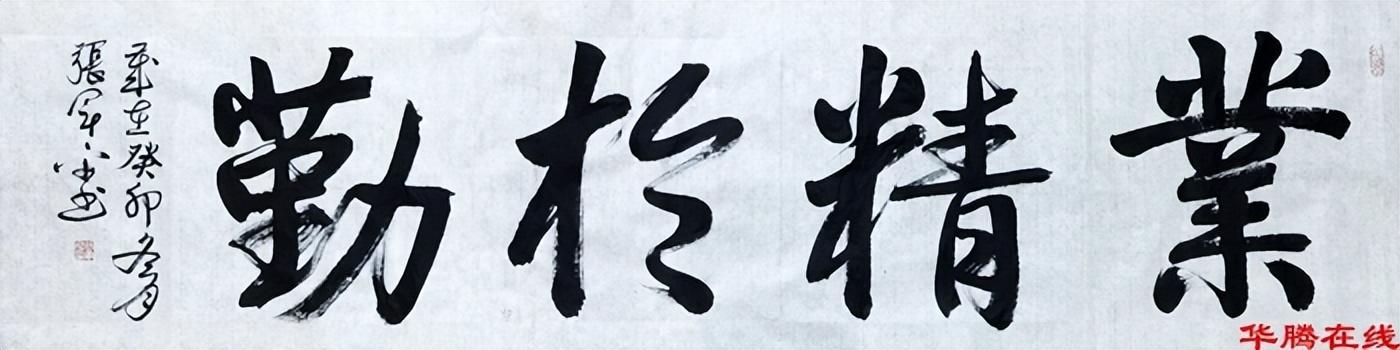 業精於勤
歲在癸卯冬月
張軍
华腾在线